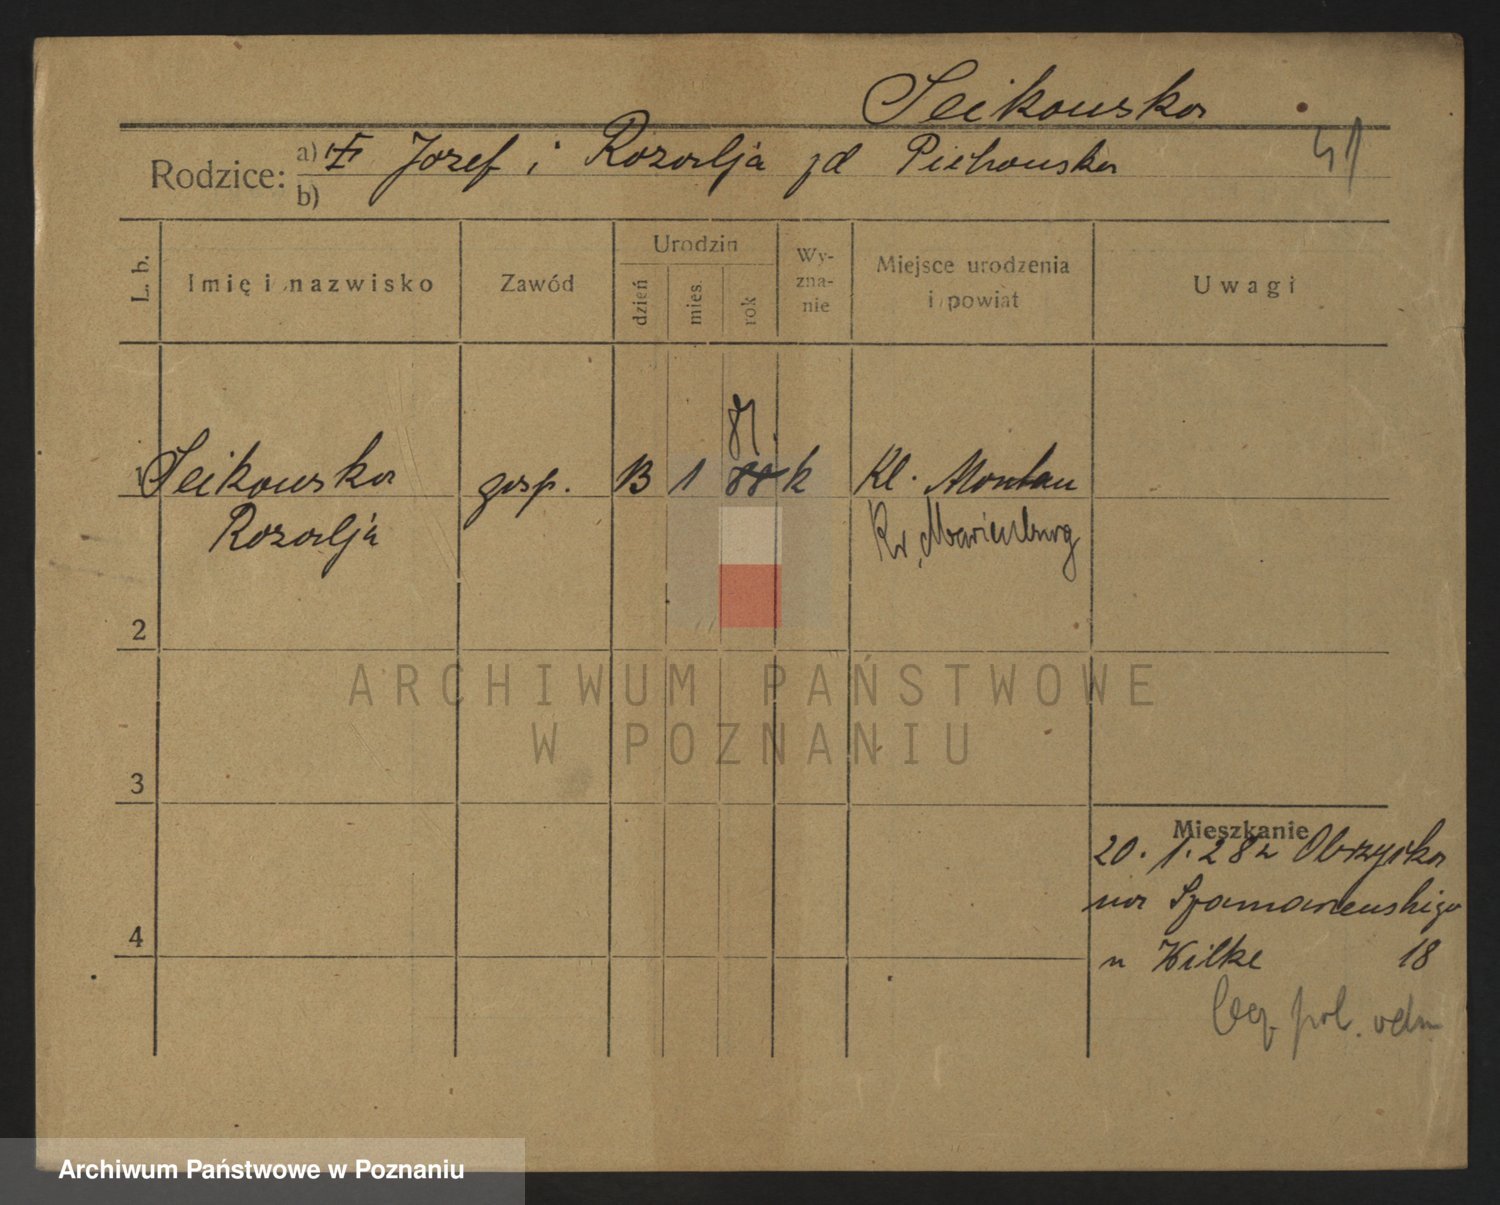 Seikowska
Rodzice: a) Józef i Rozalja zd Piechowska
b)
41
L. b.
Imię i nazwisko
Zawód
Urodzin
dzień
mies.
rok
Wy-
zna-
nie
Miejsce urodzenia
i powiat
Uwagi
81.
1 Seikowska gosp. 13 1 88 k Kl. Montau
Rozalja Kr. Marienburg
2
ARCHIWUM PAŃSTWOWE
W POZNANIU
3
Mieszkanie
20. 1. 28 z Obrzycka
na
u Wilke 18
4
leg. pol.
Archiwum Państwowe w Poznaniu